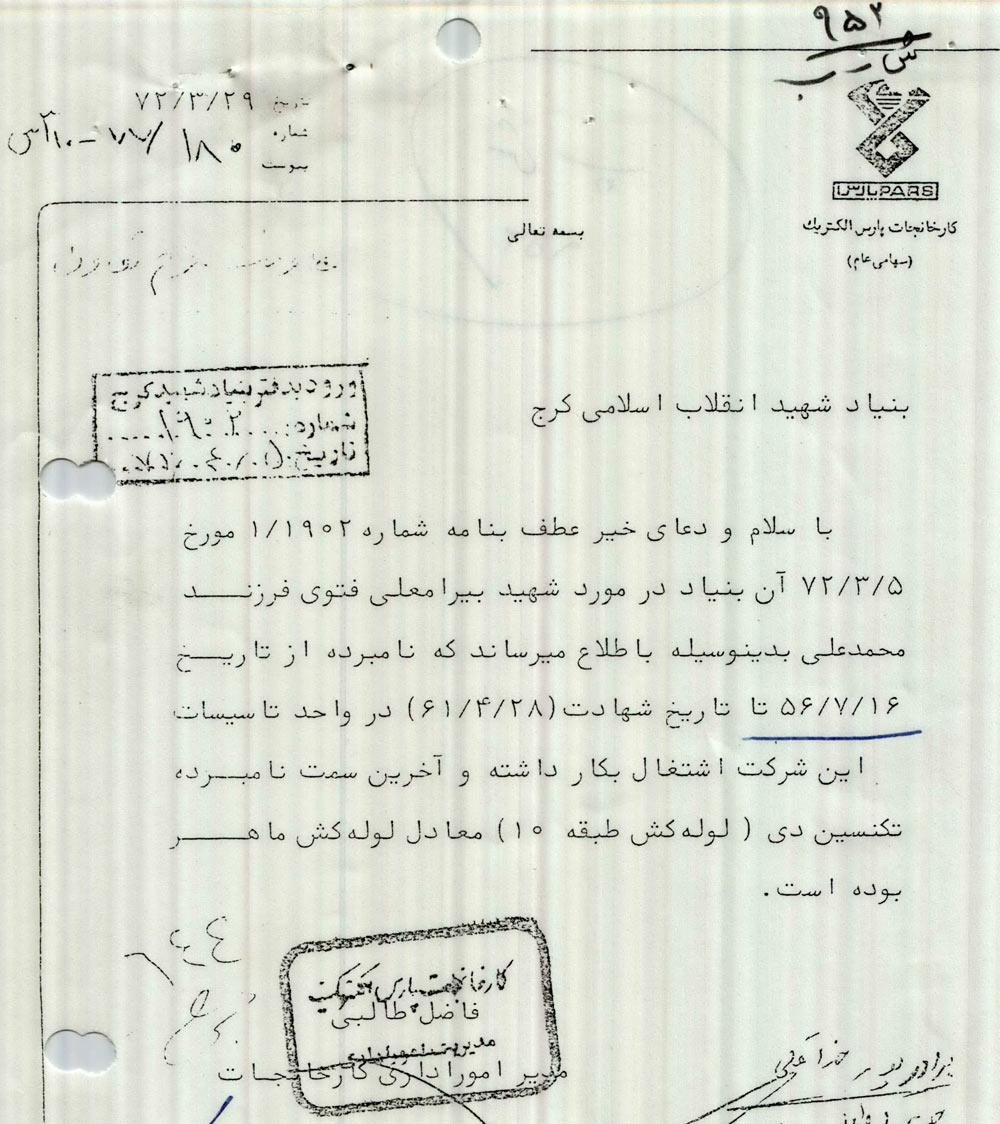 ۹۵۲
تاریخ ۷۲/۳/۲۹
شماره
پیوست
پارس PARS
کارخانجات پارس الکتریک
(سهامی عام)
بسمه تعالی
ورود بدفتر بنیاد شهید کرج
شماره: ۱۹۰۲
تاریخ:
بنیاد شهید انقلاب اسلامی کرج
با سلام و دعای خیر عطف بنامه شماره ۱/۱۹۰۲ مورخ
۷۲/۳/۵ آن بنیاد در مورد شهید بیرامعلی فتوی فرزنــد
محمدعلی بدینوسیله باطلاع میرساند که نامبرده از تاریــخ
۵۶/۷/۱۶ تا تاریخ شهادت (۶۱/۴/۲۸) در واحد تاسیسات
این شرکت اشتغال بکار داشته و آخرین سمت نامبــرده
تکنسین دی ( لوله‌کش طبقه ۱۰) معادل لوله‌کش ماهــر
بوده است.
کارخانجات پارس الکتریک
فاضل طالبی
مدیر اموراداری کارخانجات